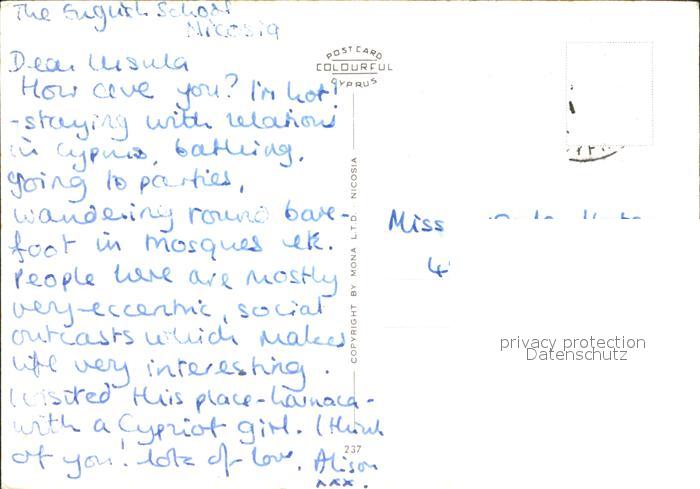 The English School
Nicosia
Dear Ursula
How are you? I'm hot!
-staying with relations
in Cyprus, bathing,
going to parties,
wandering round bare-
foot in mosques etc.
People here are mostly
very eccentric, social
outcasts which makes
life very interesting.
I visited this place-Larnaca-
with a Cypriot girl. I think
of you! lots of love, Alison
xxx.
POSTCARD
COLOURFUL
CYPRUS
COPYRIGHT BY MONA L.T.D. NICOSIA
237
Miss
4
privacy protection
Datenschutz